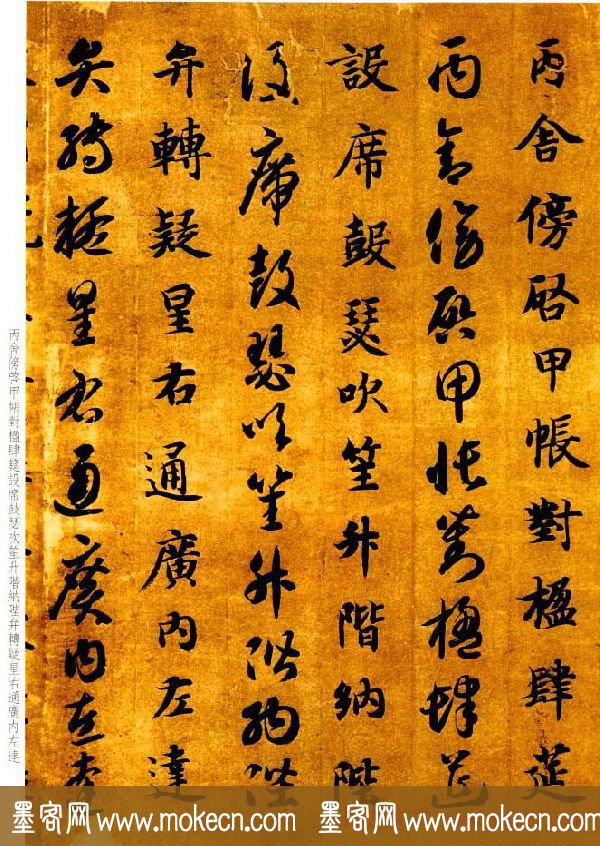 丙舍傍啓甲帳對楹肆莚
丙舍傍啓甲帳對楹肆莚
設席鼓瑟吹笙升階納陛
設席鼓瑟吹笙升階納陛
弁轉疑星右通廣内左達
弁轉疑星右通廣内左達
丙舍傍啓甲帳對楹肆筵設席鼓瑟吹笙升階納陛弁轉疑星右通廣内左達
墨客网 www.mokecn.com 墨客网 www.mokecn.com